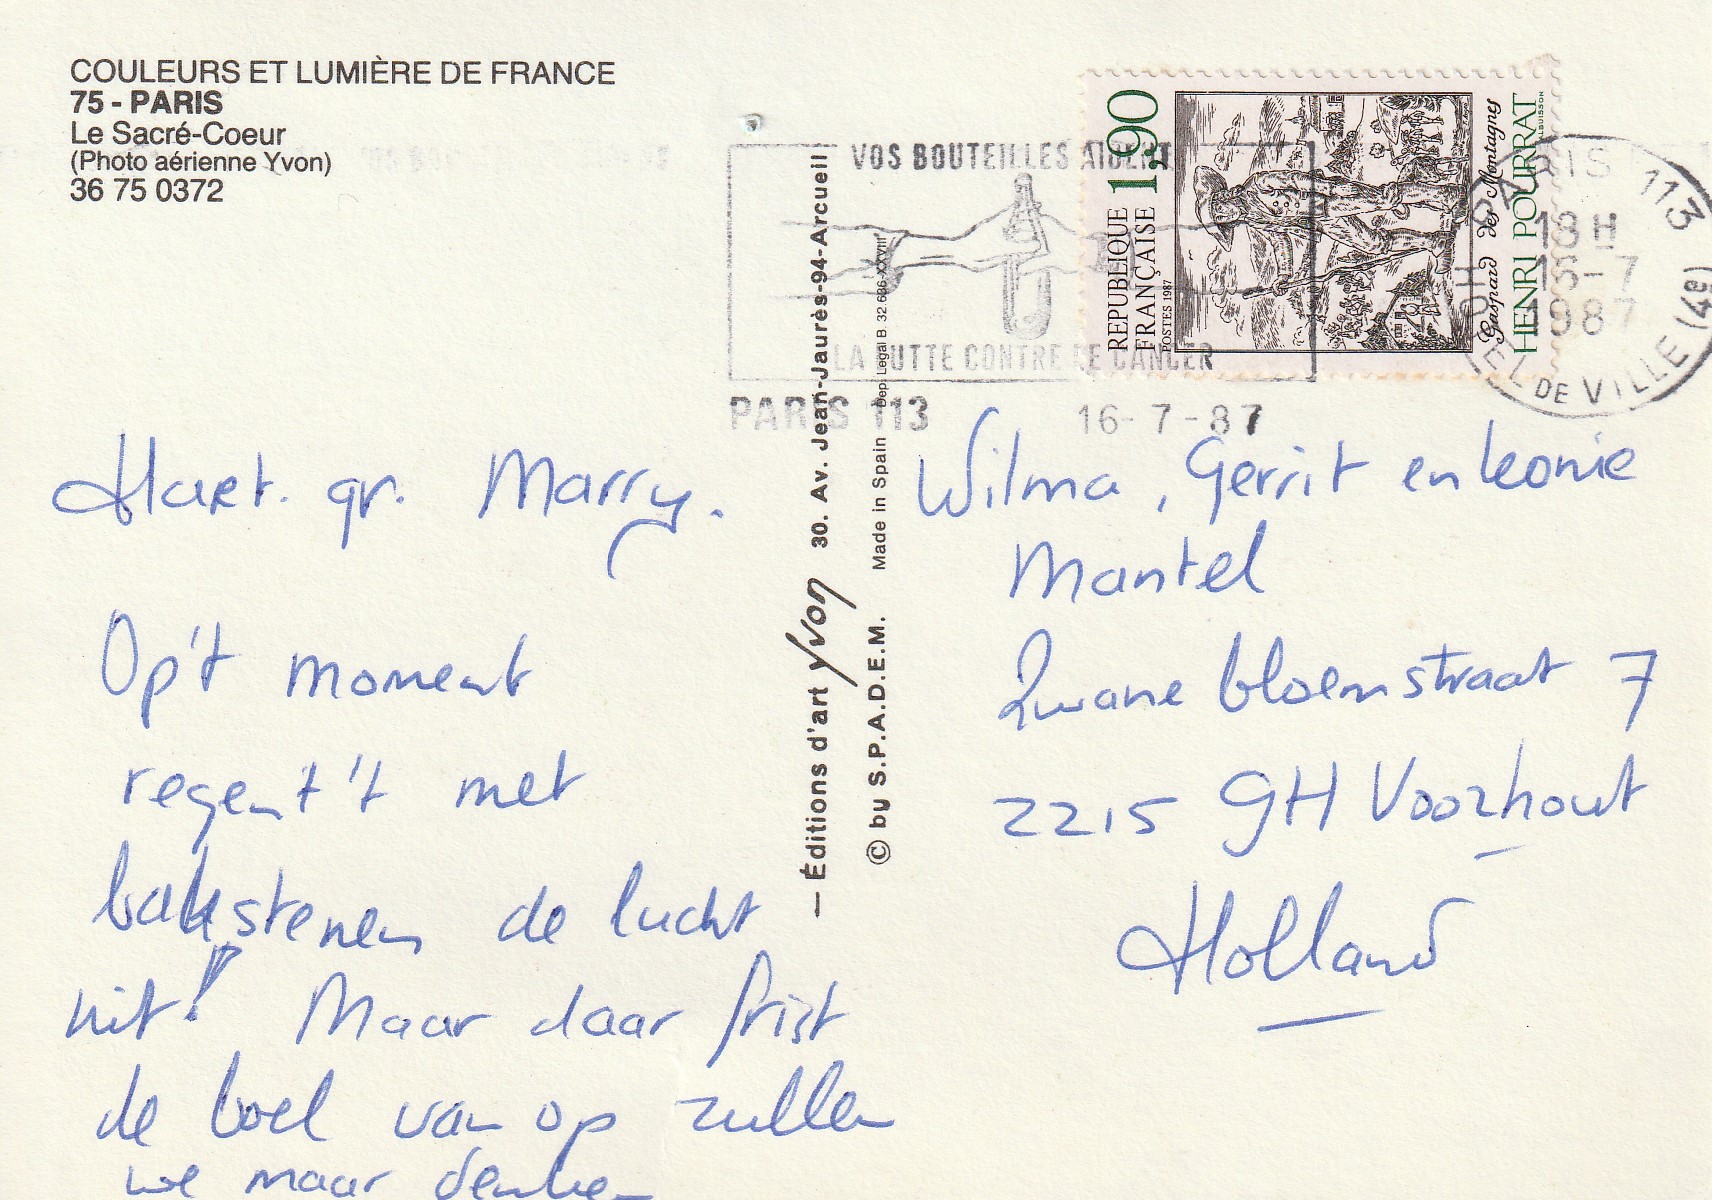 COULEURS ET LUMIÈRE DE FRANCE
75 - PARIS
Le Sacré-Coeur
(Photo aérienne Yvon)
36 75 0372
Hart. gr. Marry.
Op't moment
regent 't met
bakstenen de lucht
uit! Maar daar frist
de boel van op zullen
we maar denken
— Éditions d'art Yvon 30. Av. Jean-Jaurès-94-Arcueil
© by S.P.A.D.E.M. Made in Spain Dep. Legal B 32 636-XXVIII
VOS BOUTEILLES AIDENT
LA LUTTE CONTRE LE CANCER
PARIS 113 16-7-87
REPUBLIQUE FRANÇAISE 1,90
POSTES 1987
Gaspard des Montagnes
HENRI POURRAT
ALBUISSON
PARIS 113
18H
16-7
1987
HOTEL DE VILLE (4e)
Wilma, Gerrit en Leonie
Mantel
Zwanebloemstraat 7
2215 GH Voorhout
Holland